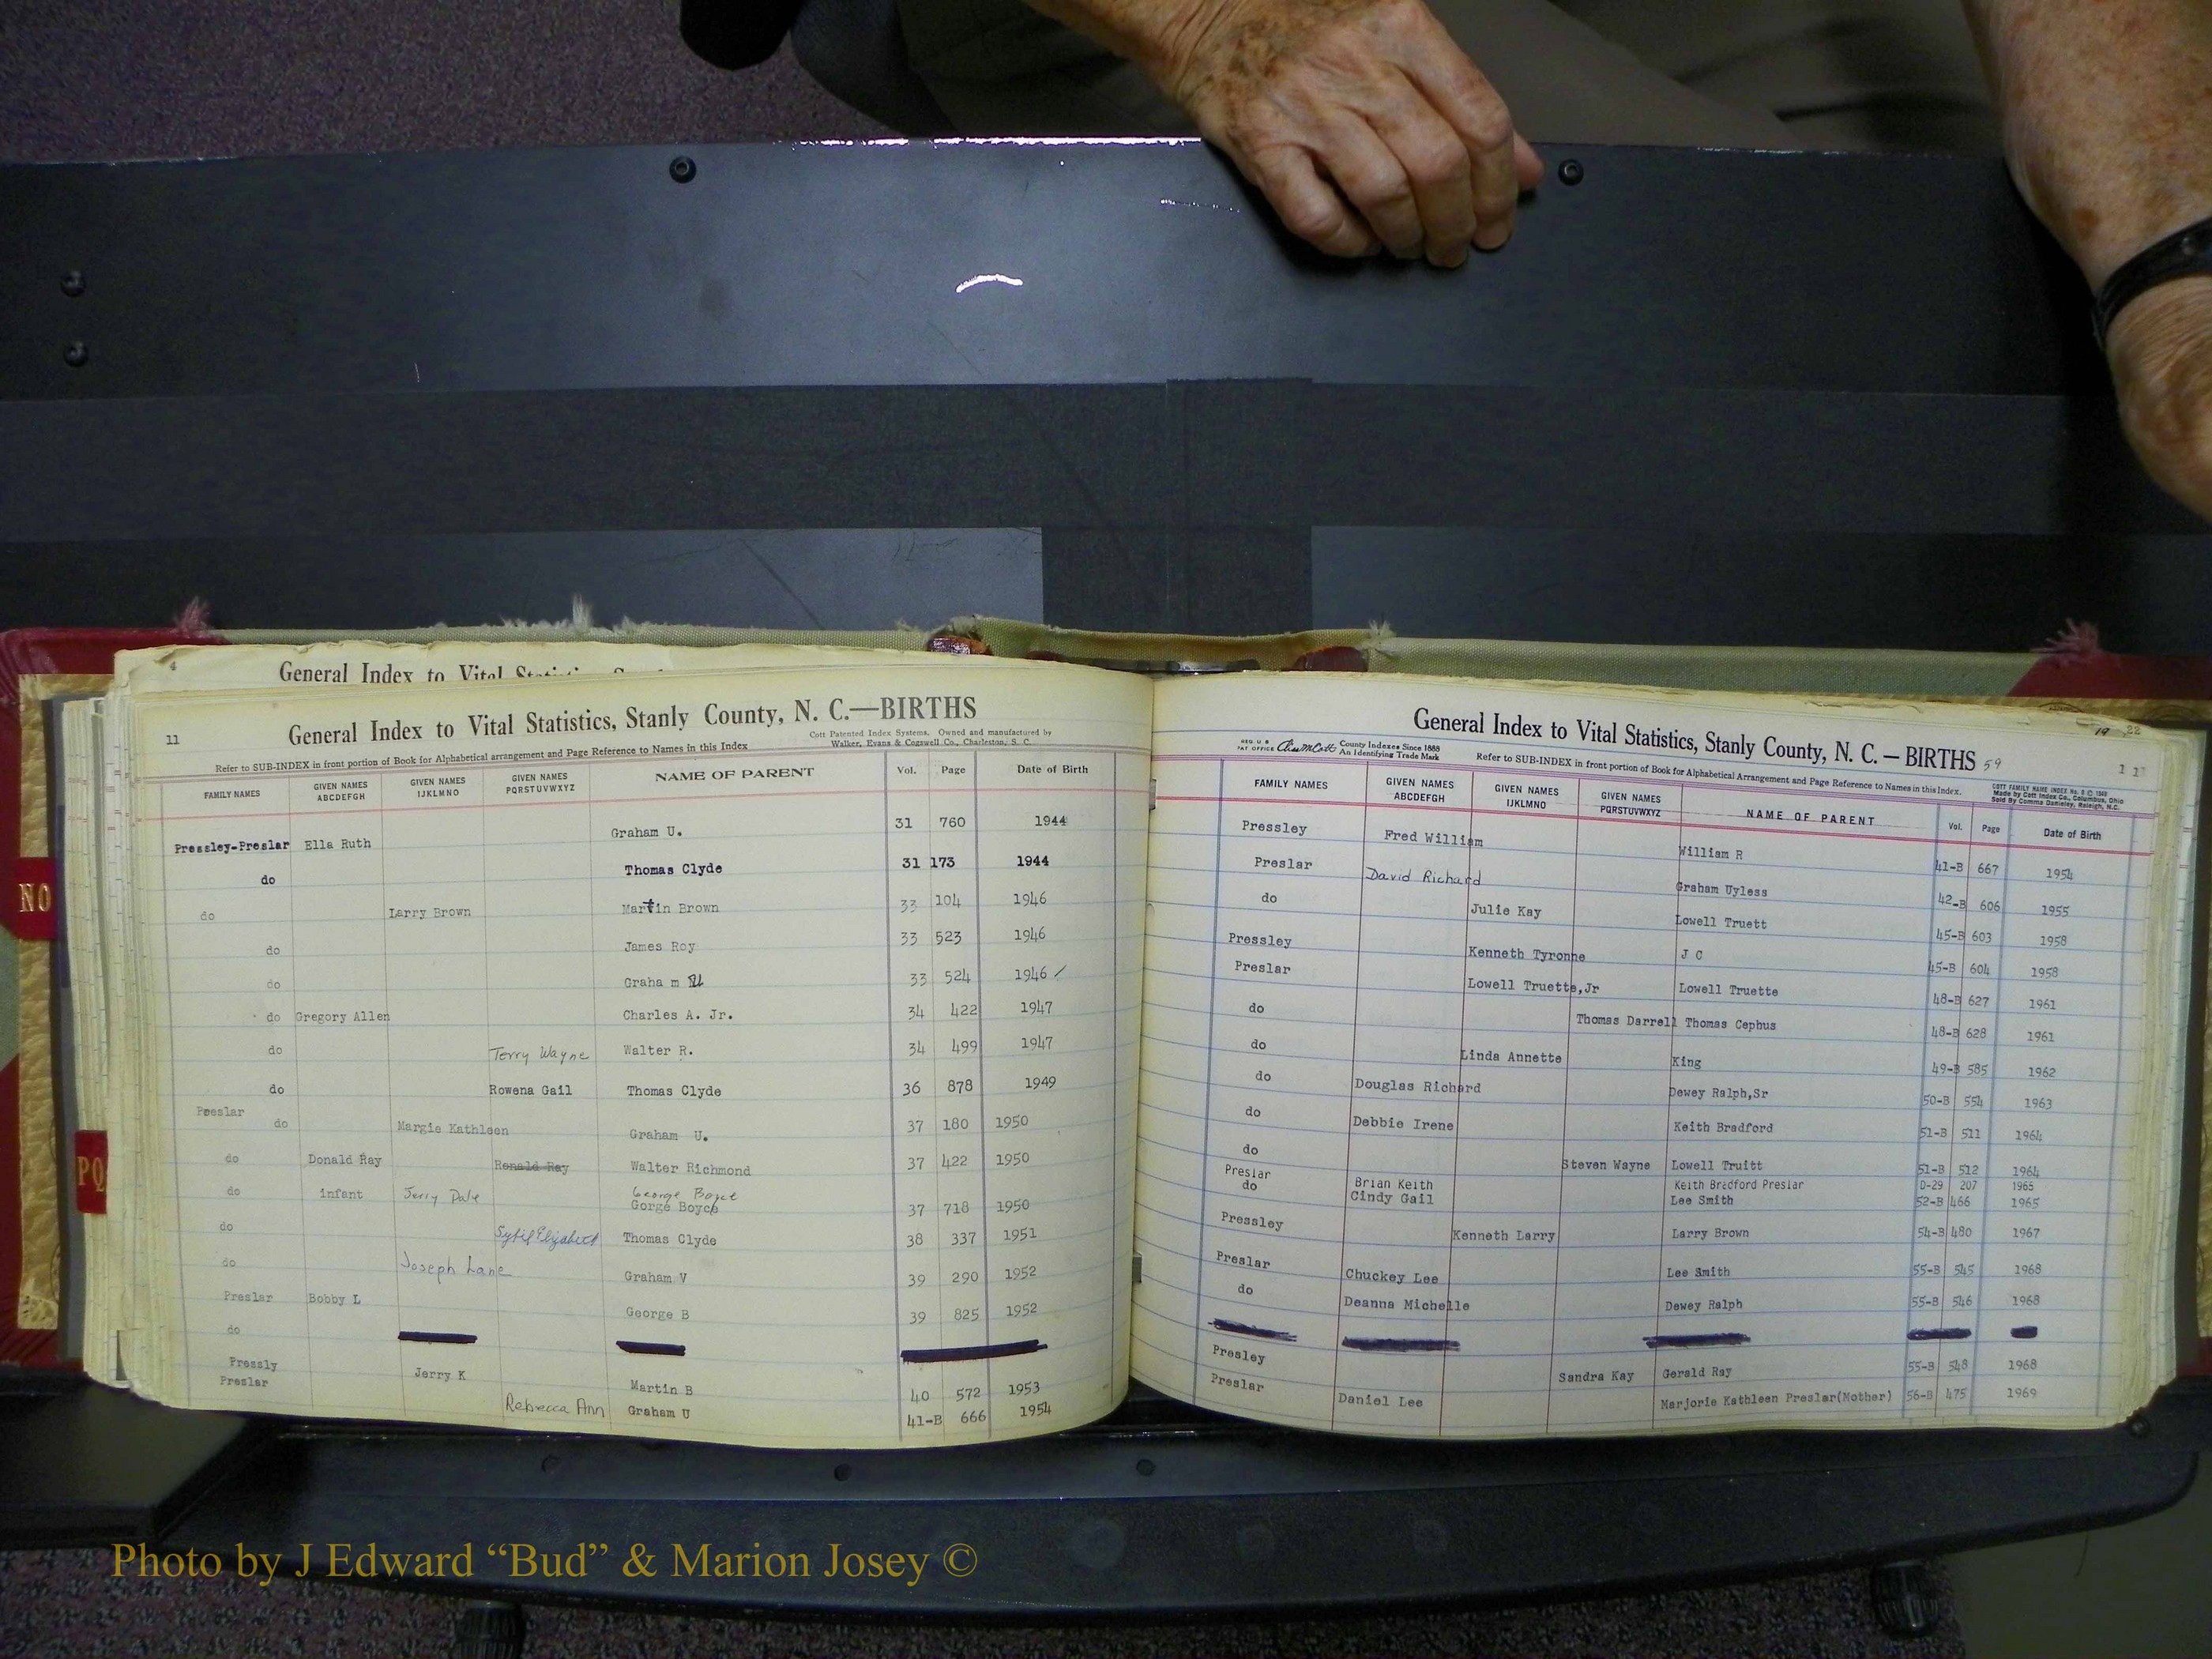 4
General Index to Vital Statistics
11
General Index to Vital Statistics, Stanly County, N. C.—BIRTHS
Cott Patented Index Systems. Owned and manufactured by
Walker, Evans & Cogswell Co., Charleston, S. C.
Refer to SUB-INDEX in front portion of Book for Alphabetical arrangement and Page Reference to Names in this Index
FAMILY NAMES GIVEN NAMES ABCDEFGH GIVEN NAMES IJKLMNO GIVEN NAMES PQRSTUVWXYZ NAME OF PARENT Vol. Page Date of Birth
Pressley-Preslar Ella Ruth Graham U. 31 760 1944
do Thomas Clyde 31 173 1944
do Larry Brown Martin Brown 33 104 1946
do James Roy 33 523 1946
do Graham U 33 524 1946
do Gregory Allen Charles A. Jr. 34 422 1947
do Terry Wayne Walter R. 34 499 1947
do Rowena Gail Thomas Clyde 36 878 1949
Preslar
do Margie Kathleen Graham U. 37 180 1950
do Donald Ray Ronald Ray Walter Richmond 37 422 1950
do infant Jerry Dale George Boyce
Gorge Boyce 37 718 1950
do Sybil Elizabeth Thomas Clyde 38 337 1951
do Joseph Lane Graham V 39 290 1952
Preslar Bobby L George B 39 825 1952
do
Pressly Jerry K Martin B 40 572 1953
Preslar Rebecca Ann Graham U 41-B 666 1954
NO
PQ
General Index to Vital Statistics, Stanly County, N. C. — BIRTHS 59
19 22
REG. U S PAT OFFICE County Indexes Since 1888
An Identifying Trade Mark
Refer to SUB-INDEX in front portion of Book for Alphabetical Arrangement and Page Reference to Names in this Index.
COTT FAMILY NAME INDEX
Made by Cott Index Co., Columbus, Ohio
Raleigh, N.C.
FAMILY NAMES GIVEN NAMES ABCDEFGH GIVEN NAMES IJKLMNO GIVEN NAMES PQRSTUVWXYZ NAME OF PARENT Vol. Page Date of Birth
Pressley Fred William William R 41-B 667 1954
Preslar David Richard Graham Uyless 42-B 606 1955
do Julie Kay Lowell Truett 45-B 603 1958
Pressley Kenneth Tyronne J C 45-B 604 1958
Preslar Lowell Truette,Jr Lowell Truette 48-B 627 1961
do Thomas Darrell Thomas Cephus 48-B 628 1961
do Linda Annette King 49-B 585 1962
do Douglas Richard Dewey Ralph,Sr 50-B 554 1963
do Debbie Irene Keith Bradford 51-B 511 1964
do Steven Wayne Lowell Truitt 51-B 512 1964
Preslar Brian Keith Keith Bradford Preslar D-29 207 1965
do Cindy Gail Lee Smith 52-B 466 1965
Pressley Kenneth Larry Larry Brown 54-B 480 1967
Preslar Chuckey Lee Lee Smith 55-B 545 1968
do Deanna Michelle Dewey Ralph 55-B 546 1968
Presley Sandra Kay Gerald Ray 55-B 548 1968
Preslar Daniel Lee Marjorie Kathleen Preslar(Mother) 56-B 475 1969
Photo by J Edward “Bud” & Marion Josey ©